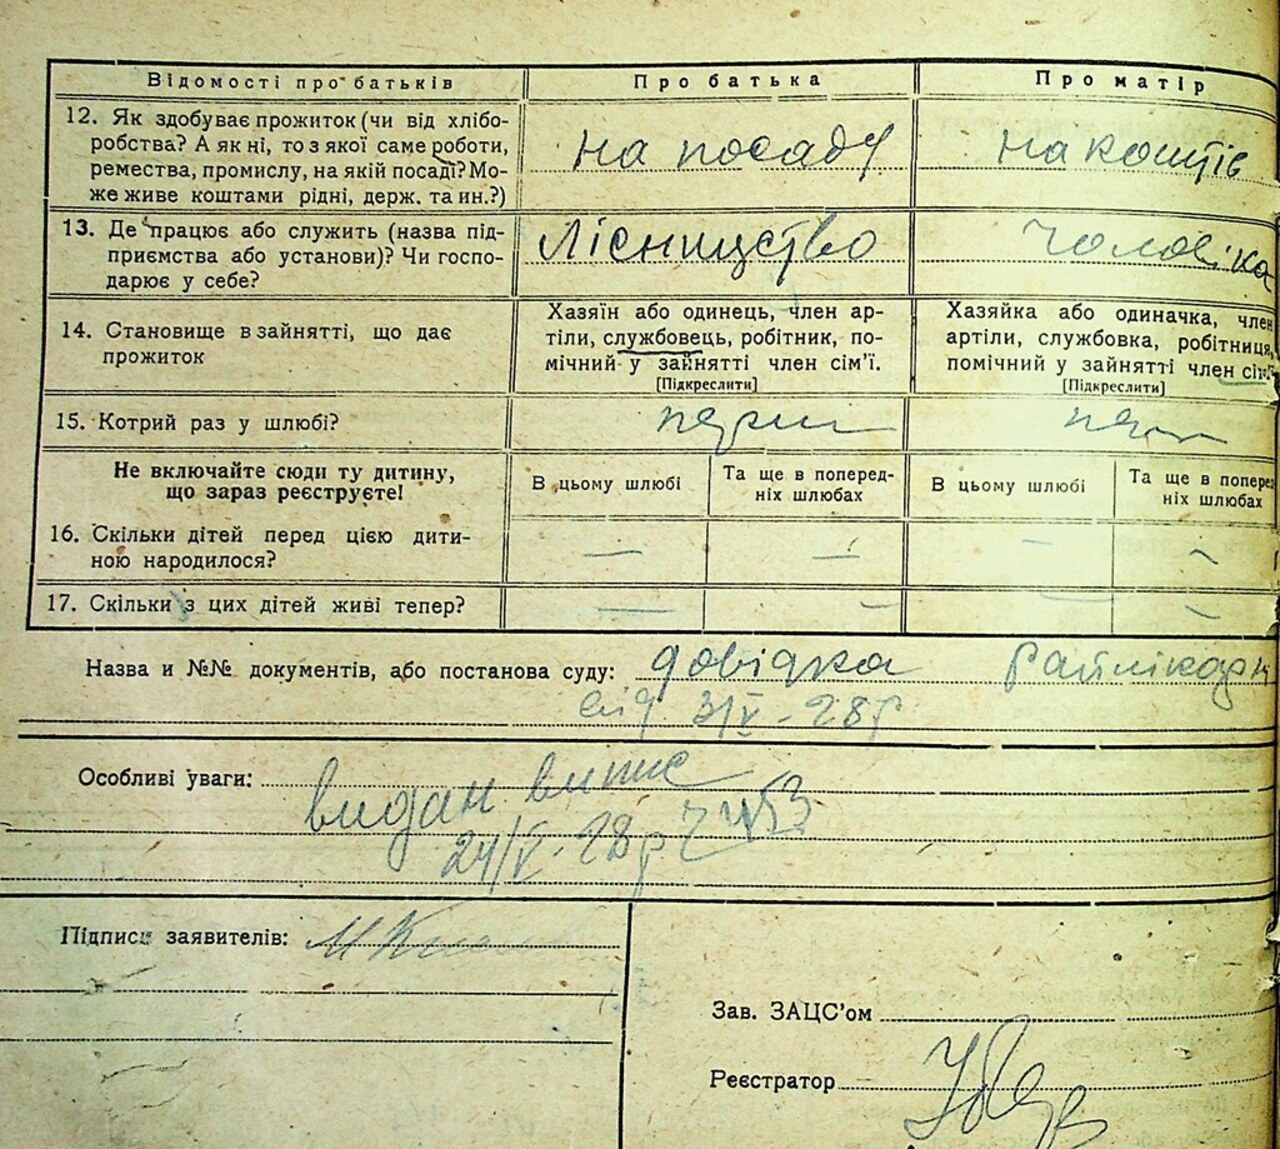 Відомості про батьків Про батька Про матір
12. Як здобуває прожиток (чи від хлібо-
робства? А як ні, то з якої саме роботи,
ремества, промислу, на якій посаді? Мо-
же живе коштами рідні, держ. та ин.?)
на посаду на коштів
13. Де працює або служить (назва під-
приємства або установи)? Чи госпо-
дарює у себе?
Лісництво чоловіка
14. Становище в зайнятті, що дає
прожиток
Хазяїн або одинець, член ар-
тіли, службовець, робітник, по-
мічний у зайнятті член сім'ї.
[Підкреслити]
Хазяйка або одиначка, член
артіли, службовка, робітниця,
помічний у зайнятті член сім'ї
[Підкреслити]
15. Котрий раз у шлюбі? перш
Не включайте сюди ту дитину,
що зараз реєструєте!
В цьому шлюбі Та ще в поперед-
ніх шлюбах
В цьому шлюбі Та ще в поперед
ніх шлюбах
16. Скільки дітей перед цією дити-
ною народилося? — — — —
17. Скільки з цих дітей живі тепер? — — — —
Назва и №№ документів, або постанова суду: довідка Райлікарн
від 31/V - 28 р
Особливі уваги: видан випис
24/V - 28 р
Підписи заявителів:
Зав. ЗАЦС'ом
Реєстратор